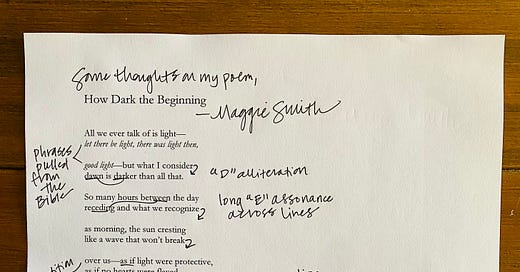 Some thoughts on my poem,
How Dark the Beginning
—Maggie Smith
All we ever talk of is light—
let there be light, there was light then,
phrases
pulled
from
the
Bible
good light—but what I consider
dawn is darker than all that.
"D" alliteration
So many hours between the day
receding and what we recognize
long "E" assonance
across lines
as morning, the sun cresting
like a wave that won't break
over us—as if light were protective,
as if no hearts were flayed